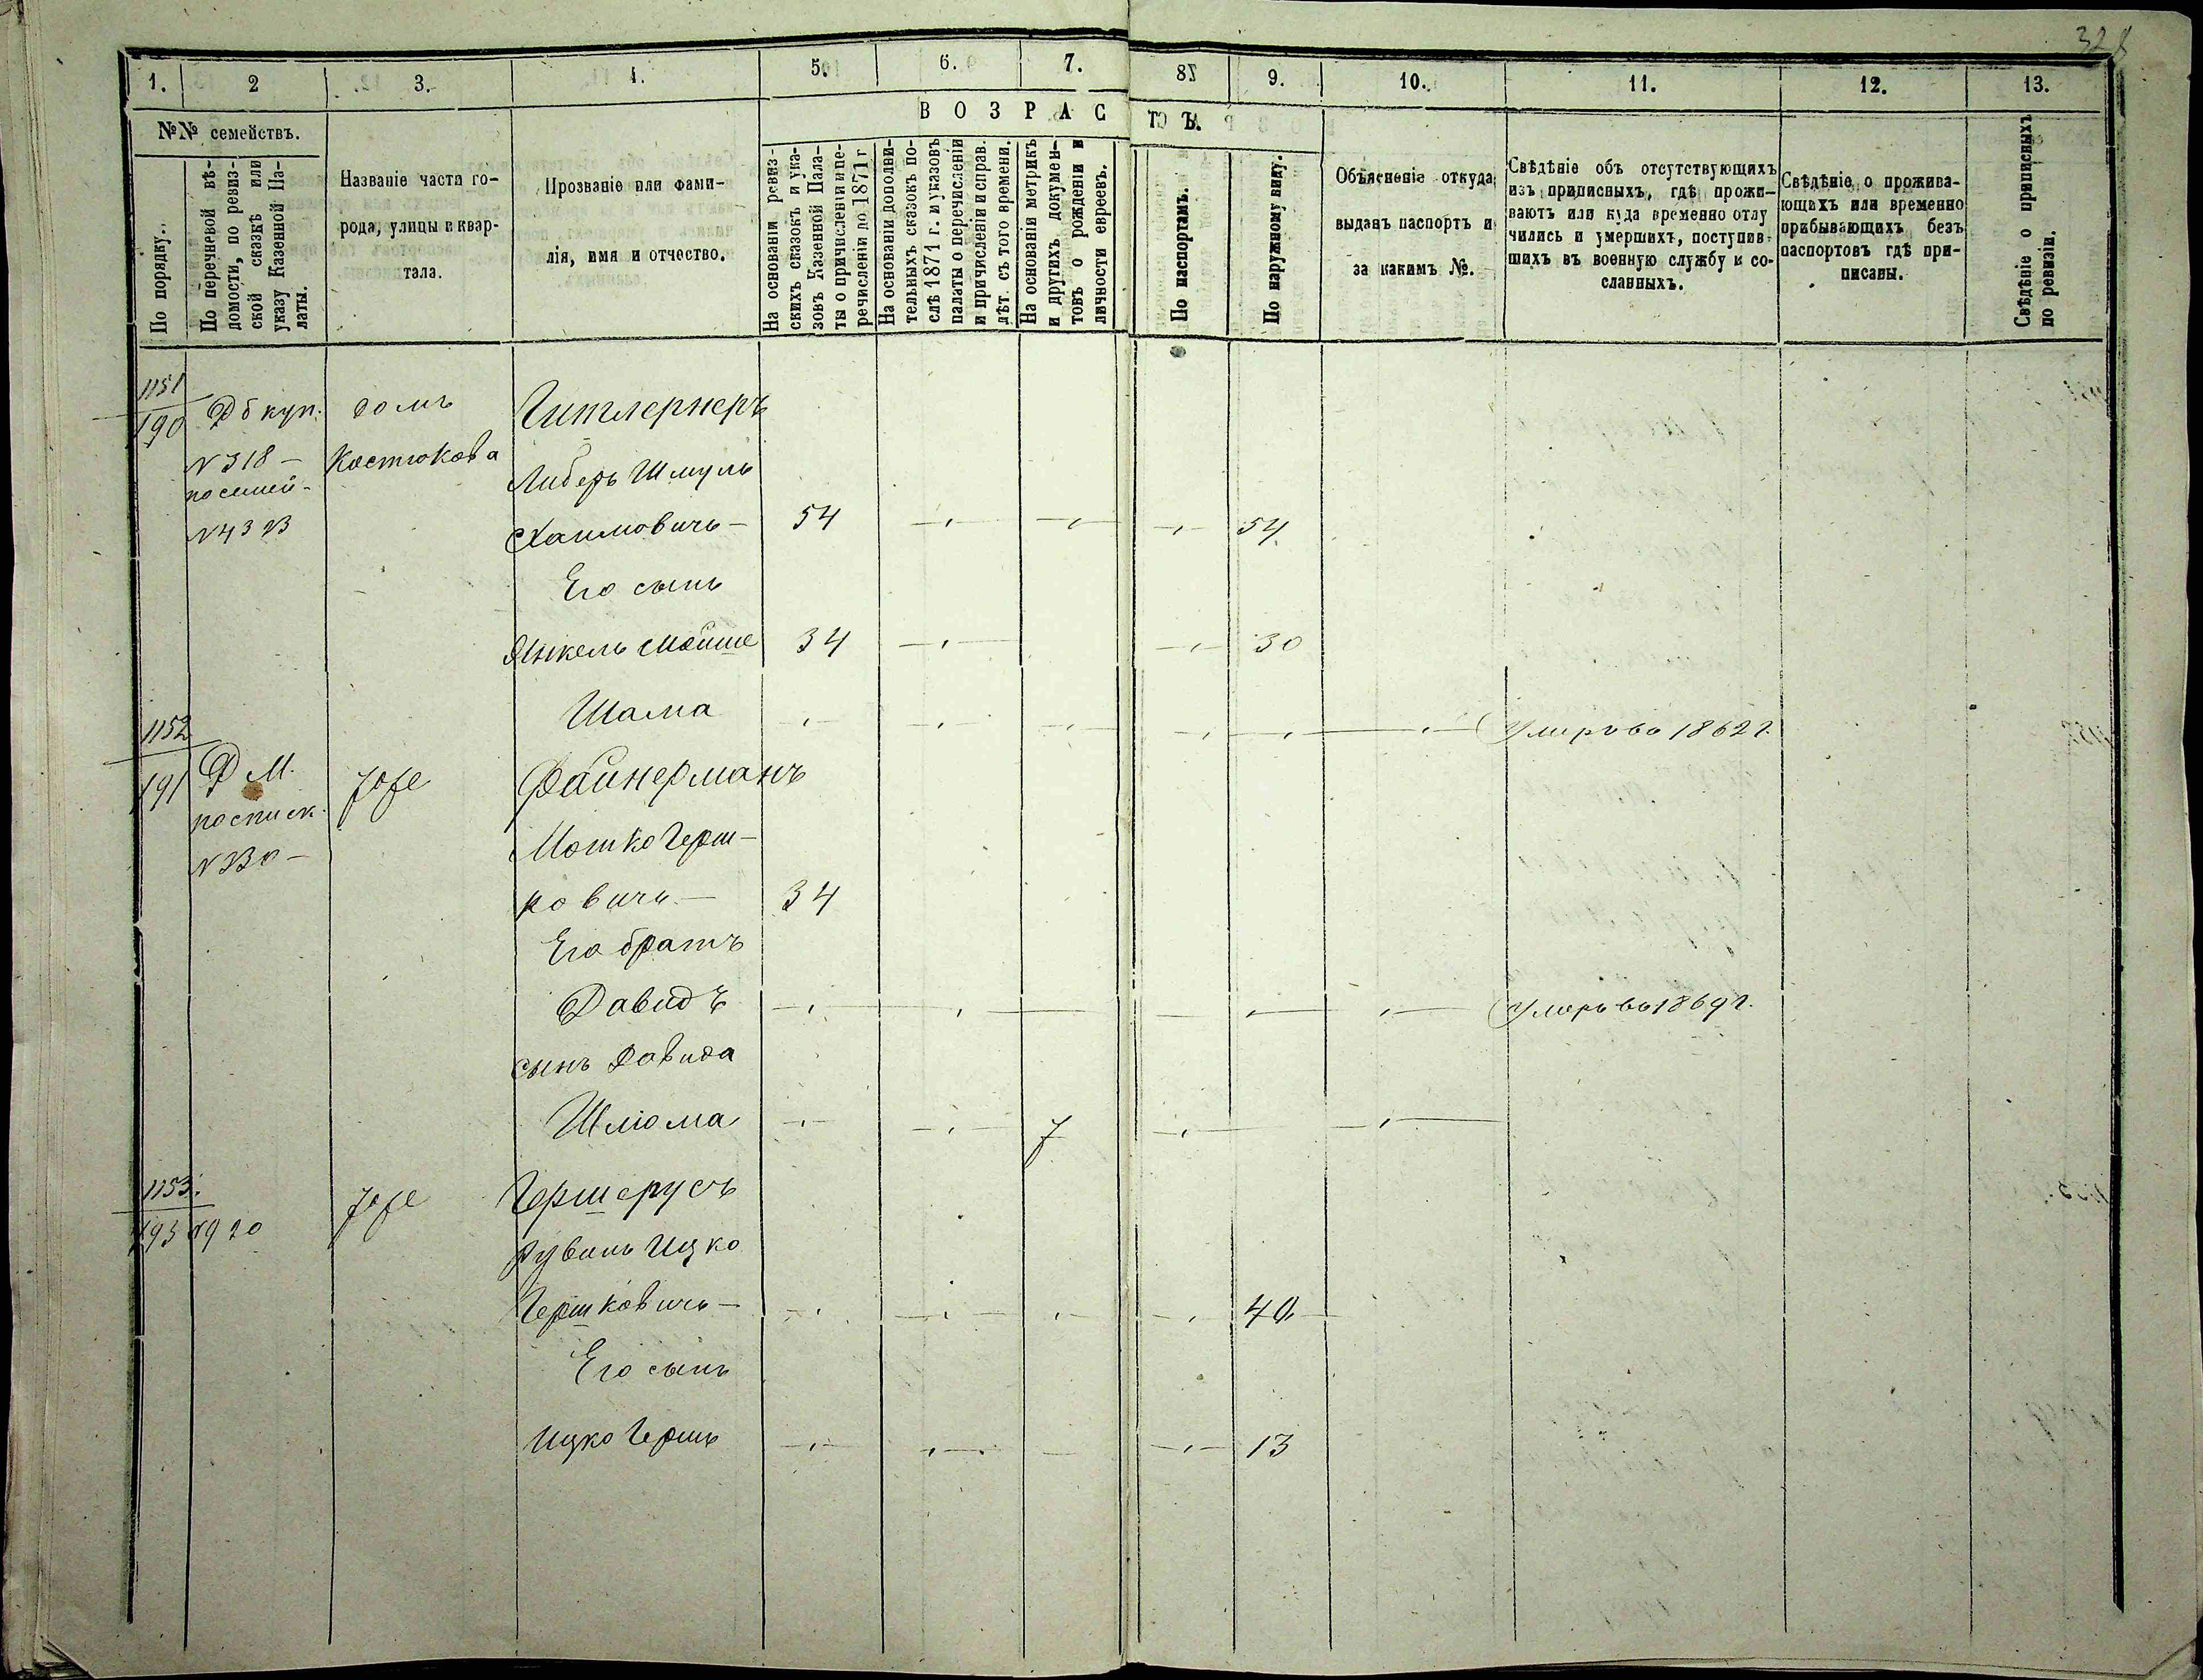 328
1. 2 3. 4. 5. 6. 7. 8 9. 10. 11. 12. 13.
№№ семействъ.
По порядку.
По перечневой вѣ-
домости, по ревиз-
ской сказкѣ или
указу Казенной Па-
латы.
Названіе части го-
рода, улицы и квар-
тала.
Прозваніе или фами-
лія, имя и отчество.
ВОЗРАСТЪ.
На основаніи ревиз-
скихъ сказокъ и ука-
зовъ Казенной Пала-
ты о причисленіи и пе-
речисленіи до 1871 г
На основаніи дополни-
тельныхъ сказокъ по-
слѣ 1871 г. и указовъ
палаты о перечисленіи
и причисленіи и справ.
лѣт. съ того времени.
На основаніи метрикъ
и другихъ докумен-
товъ о рожденіи и
личности евреевъ.
По паспортамъ.
По наружному виду.
Объясненіе откуда
выданъ паспортъ и
за какимъ №.
Свѣдѣніе объ отсутствующихъ
изъ приписныхъ, гдѣ прожи-
ваютъ или куда временно отлу
чились и умершихъ, поступив-
шихъ въ военную службу и со-
сланныхъ.
Свѣдѣніе о прожива-
ющихъ или временно
прибывающихъ безъ
паспортовъ гдѣ при-
писаны.
Свѣдѣніе о приписныхъ
по ревизіи.
1151
190 куп. домъ Гитлернеръ
N 318 — Костюкова
Либеръ Шмуль
посемей-
N 43
Хаимовичъ — 54 54
Его сынъ
Янкель Мойше 34 30
Шама Умеръ въ 1862 г.
1152
191 Д М. Файнерманъ
посписк.
Мошко Герш-
ковичъ — 34
Его братъ
Давидъ Умеръ въ 1869 г.
сынъ Давида
Шліома 7
1153.
193 N 920 Гершерусъ
Рувинъ Ицко
Гершковичъ — 40
Его сынъ
Ицко Гершъ 13